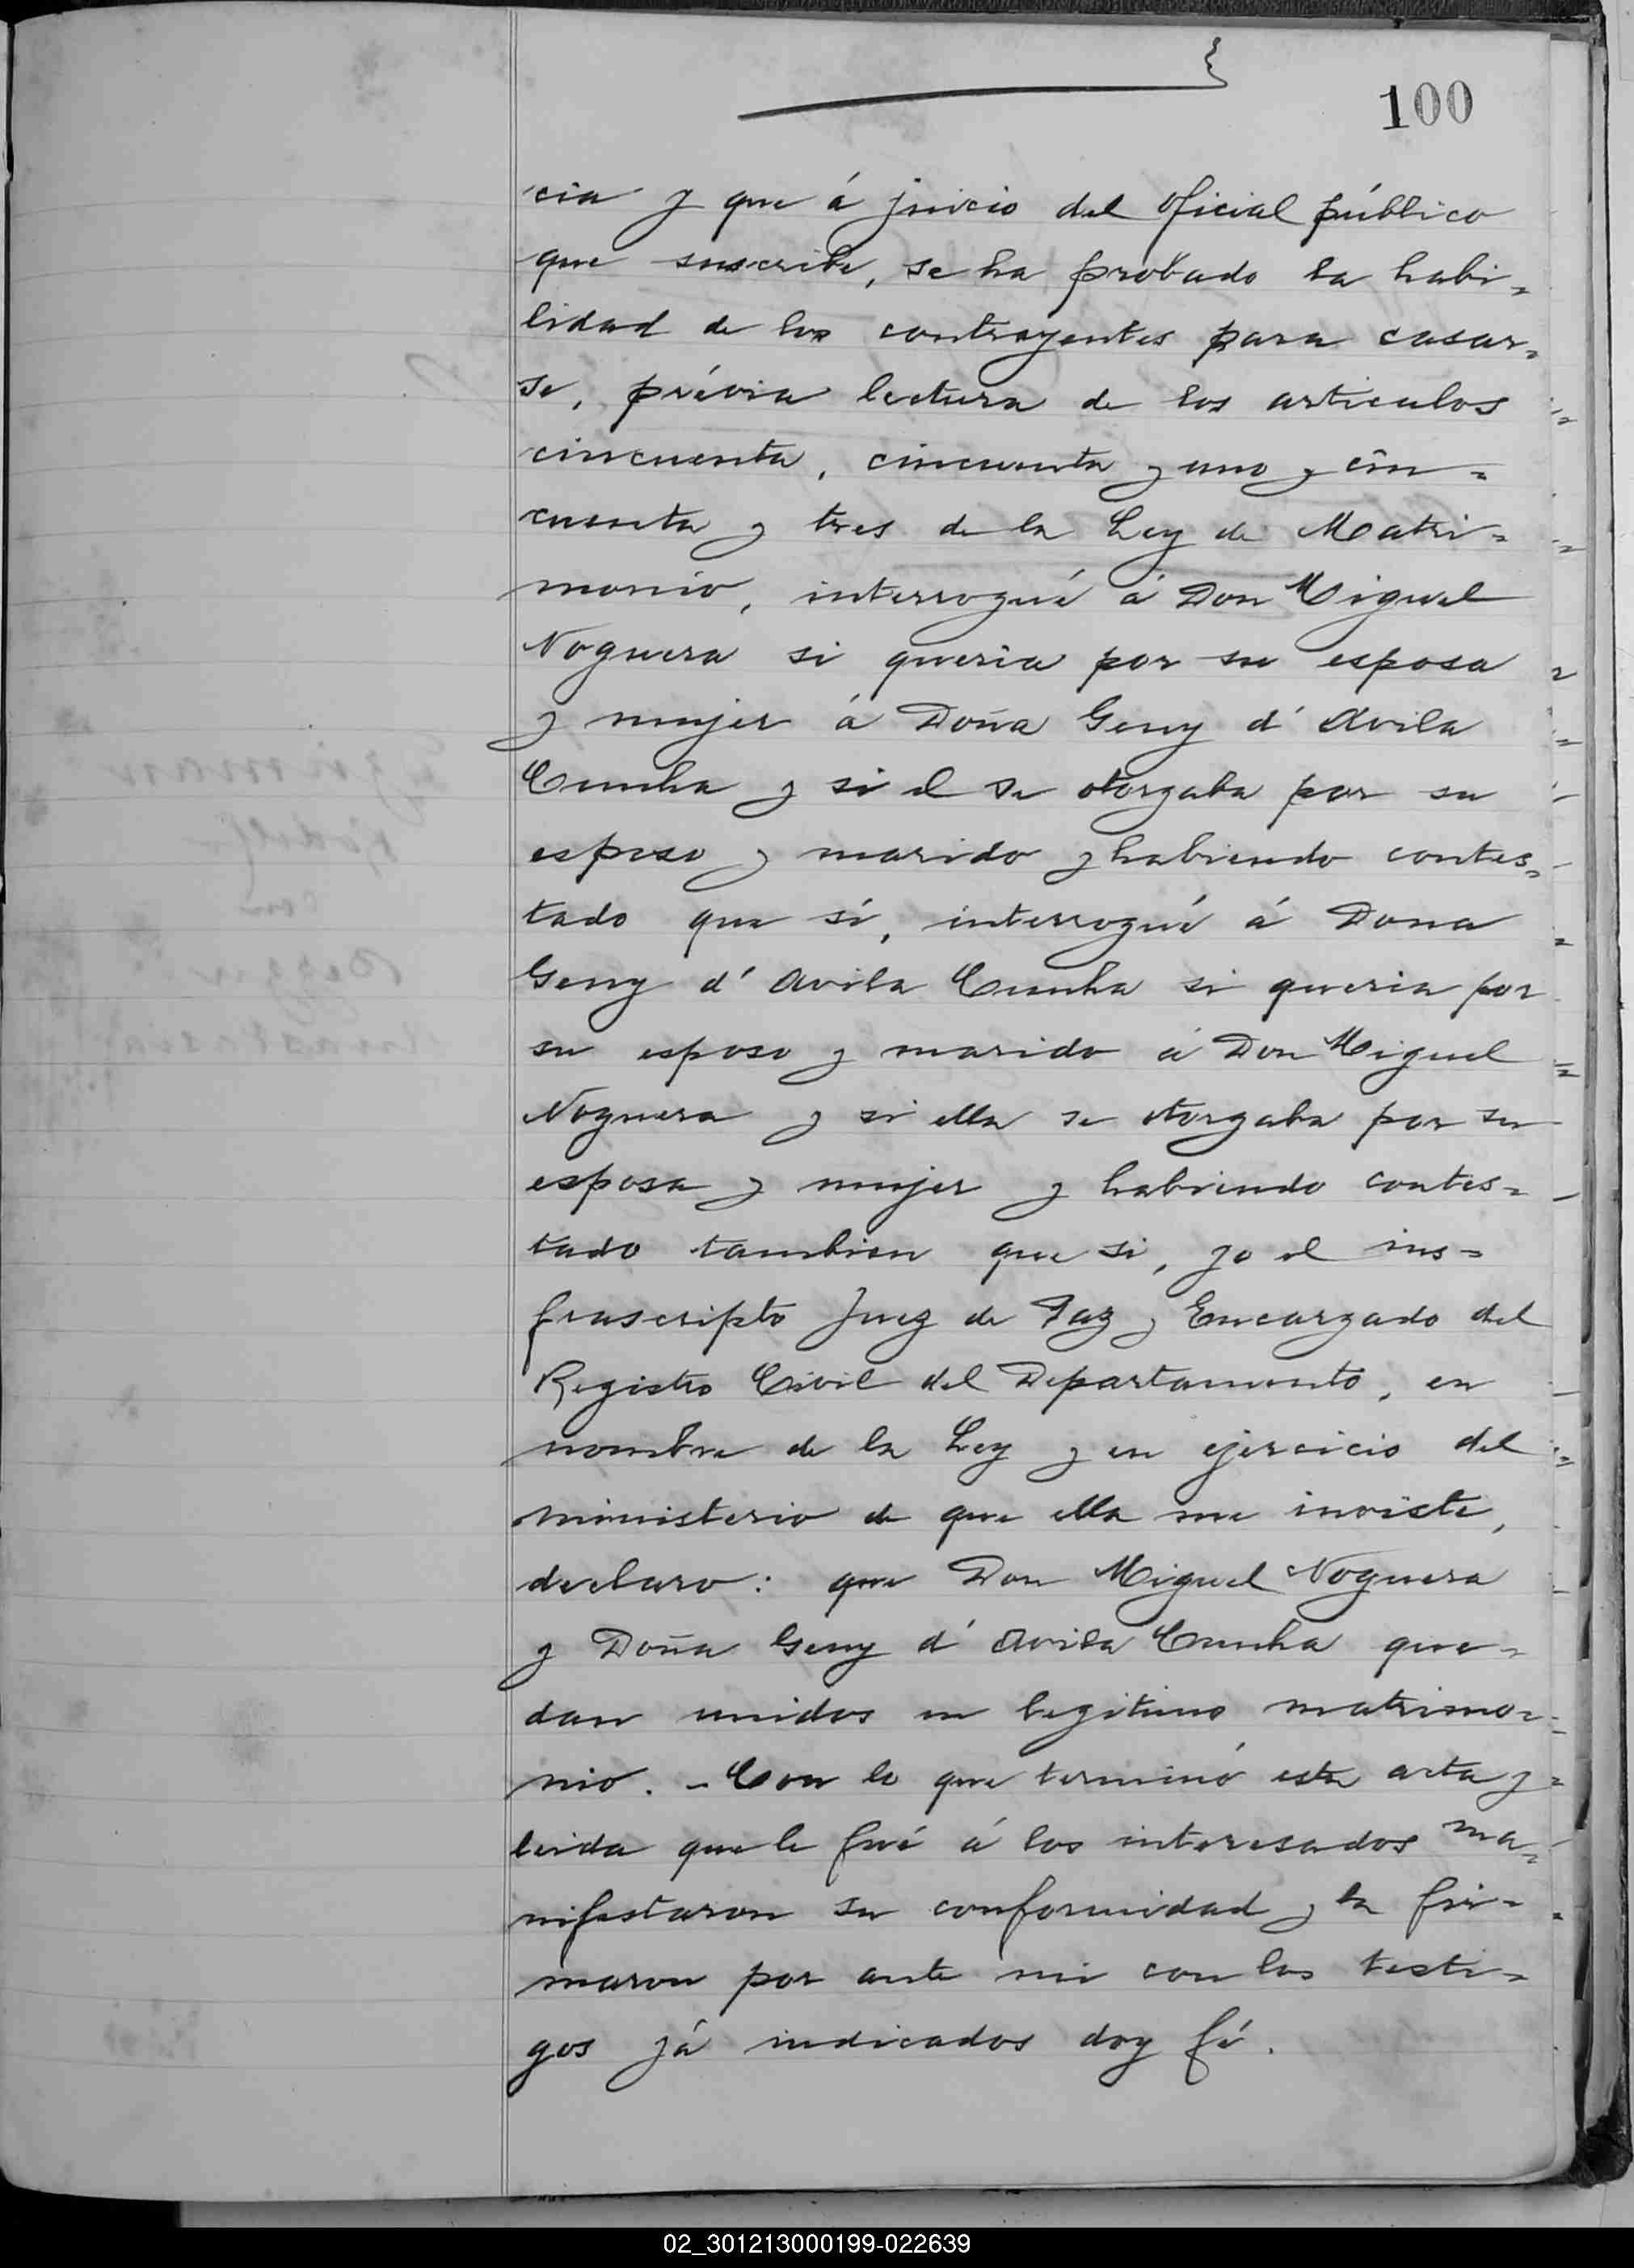 100
cia y que á juicio del oficial público
que suscribe, se ha probado la habi=
lidad de los contrayentes para casar=
se, prévia lectura de los articulos
cincuenta, cincuenta y uno y cin=
cuenta y tres de la Ley de Matri=
monio, interrogué á Don Miguel
Noguera si queria por su esposa
y mujer á Doña Geny d' Avila
Cunha y si el se otorgaba por su
esposo y marido y habiendo contes=
tado que sí, interrogué á Dona
Geny d' Avila Cunha si queria por
su esposo y marido á Don Miguel
Noguera y si ella se otorgaba por su
esposa y mujer y habiendo contes=
tado tambien que si, yo el ins=
frascripto Juez de Paz y Encargado del
Registro Civil del Departamento, en
nombre de la Ley y en ejercicio del
ministerio de que ella me inviste,
declaro: que Don Miguel Noguera
y Doña Geny d' Avila Cunha que=
dan unidos en legitimo matrimo=
nio. - Con lo que terminó esta acta y
leida que le fué á los interesados ma=
nifestaron su conformidad y la fir=
maron por ante mi con los testi=
gos já indicados doy fé.
02_301213000199-022639